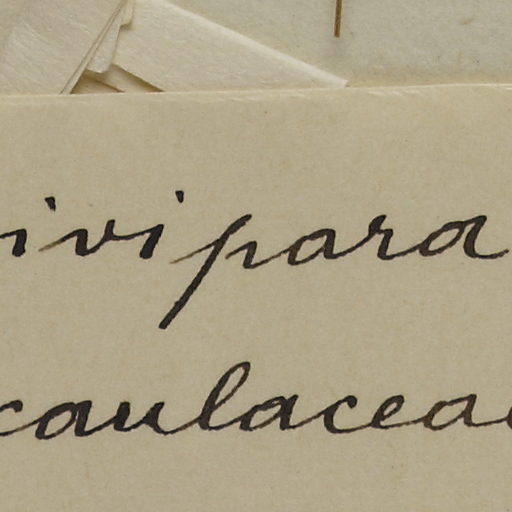 ivipara
caulaceae